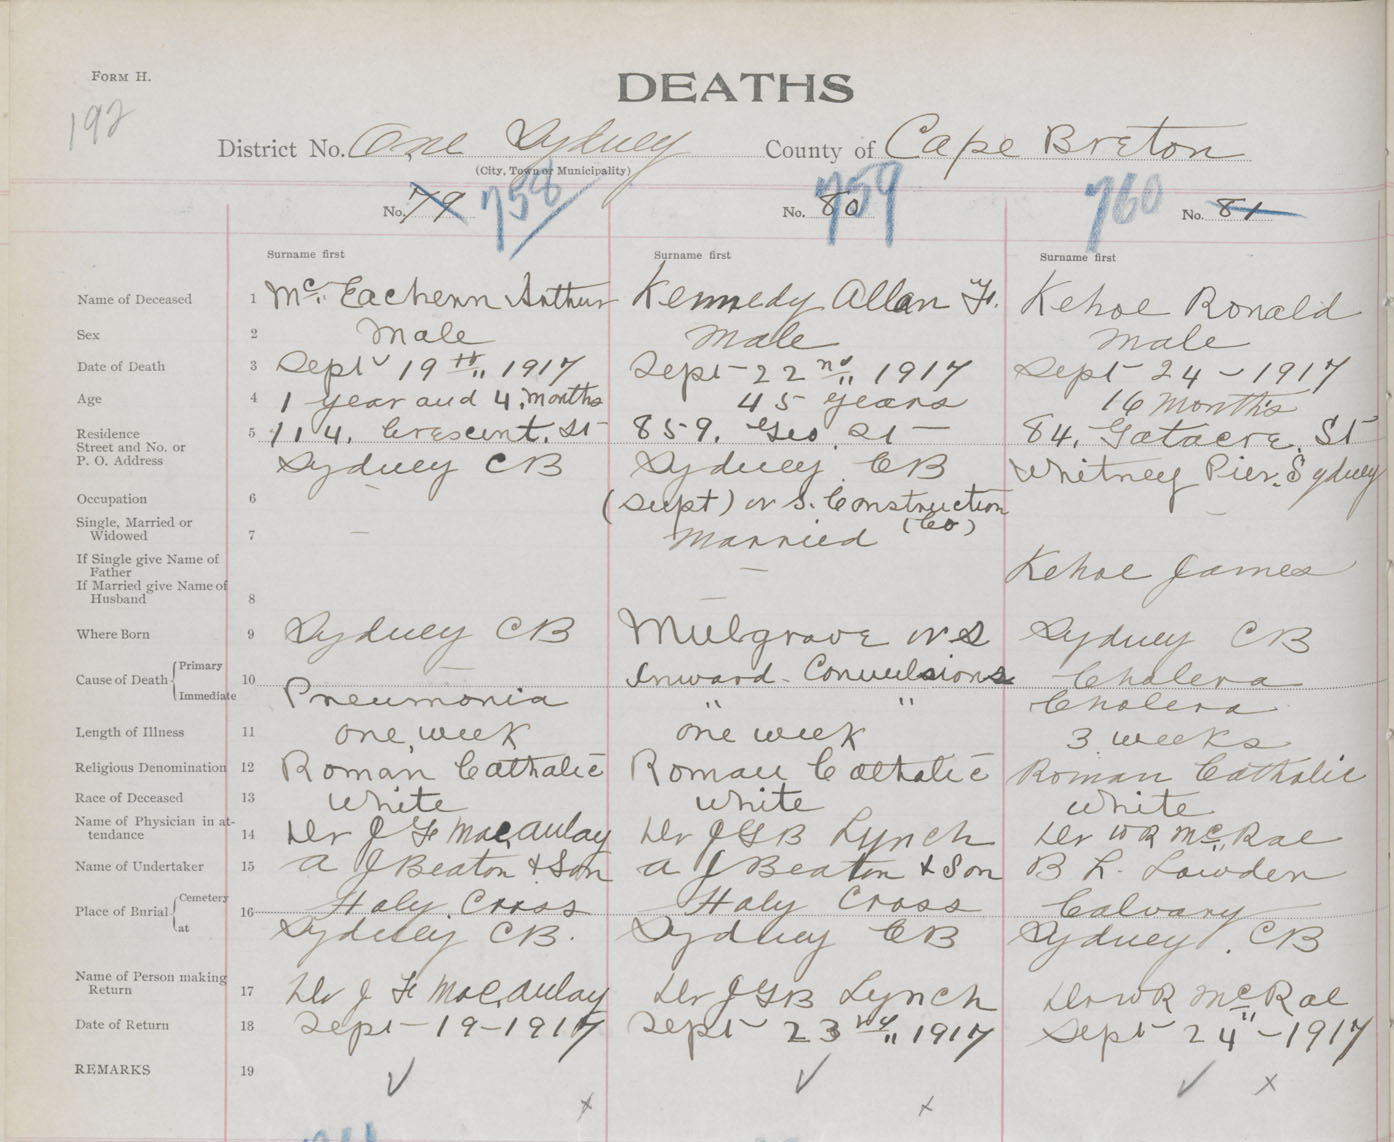 FORM H.
DEATHS
192
District No. One Sydney County of Cape Breton
(City, Town or Municipality)
No. 79 758 No. 80 759 760 No. 81
Surname first Surname first Surname first
Name of Deceased 1 Mc Eachern Arthur Kennedy Allan F. Kehoe Ronald
Sex 2 Male Male Male
Date of Death 3 Sept 19th 1917 Sept 22nd 1917 Sept 24 - 1917
Age 4 1 year and 4 months 45 years 16 months
Residence 5 114. Crescent. St 859. Geo. St 84. Gatacre. St
Street and No. or
P. O. Address Sydney CB Sydney CB Whitney Pier. Sydney
Occupation 6 — (Supt) N S. Construction —
(Co)
Single, Married or
Widowed 7 — Married
If Single give Name of
Father — Kehoe James
If Married give Name of
Husband 8 —
Where Born 9 Sydney CB Mulgrave N S Sydney CB
Cause of Death Primary 10 — Inward Convulsions Cholera
Immediate Pneumonia " " Cholera
Length of Illness 11 one week one week 3 weeks
Religious Denomination 12 Roman Catholic Roman Catholic Roman Catholic
Race of Deceased 13 White White White
Name of Physician in at-
tendance 14 Dr J F MacAulay Dr J G B Lynch Dr W R McRae
Name of Undertaker 15 A J Beaton & Son A J Beaton & Son B L. Lowden
Place of Burial Cemetery 16 Holy Cross Holy Cross Calvary
at Sydney CB. Sydney CB Sydney. CB
Name of Person making
Return 17 Dr J F MacAulay Dr J G B Lynch Dr W R McRae
Date of Return 18 Sept - 19 - 1917 Sept 23rd 1917 Sept 24 - 1917
REMARKS 19 ✓ x ✓ x ✓ x